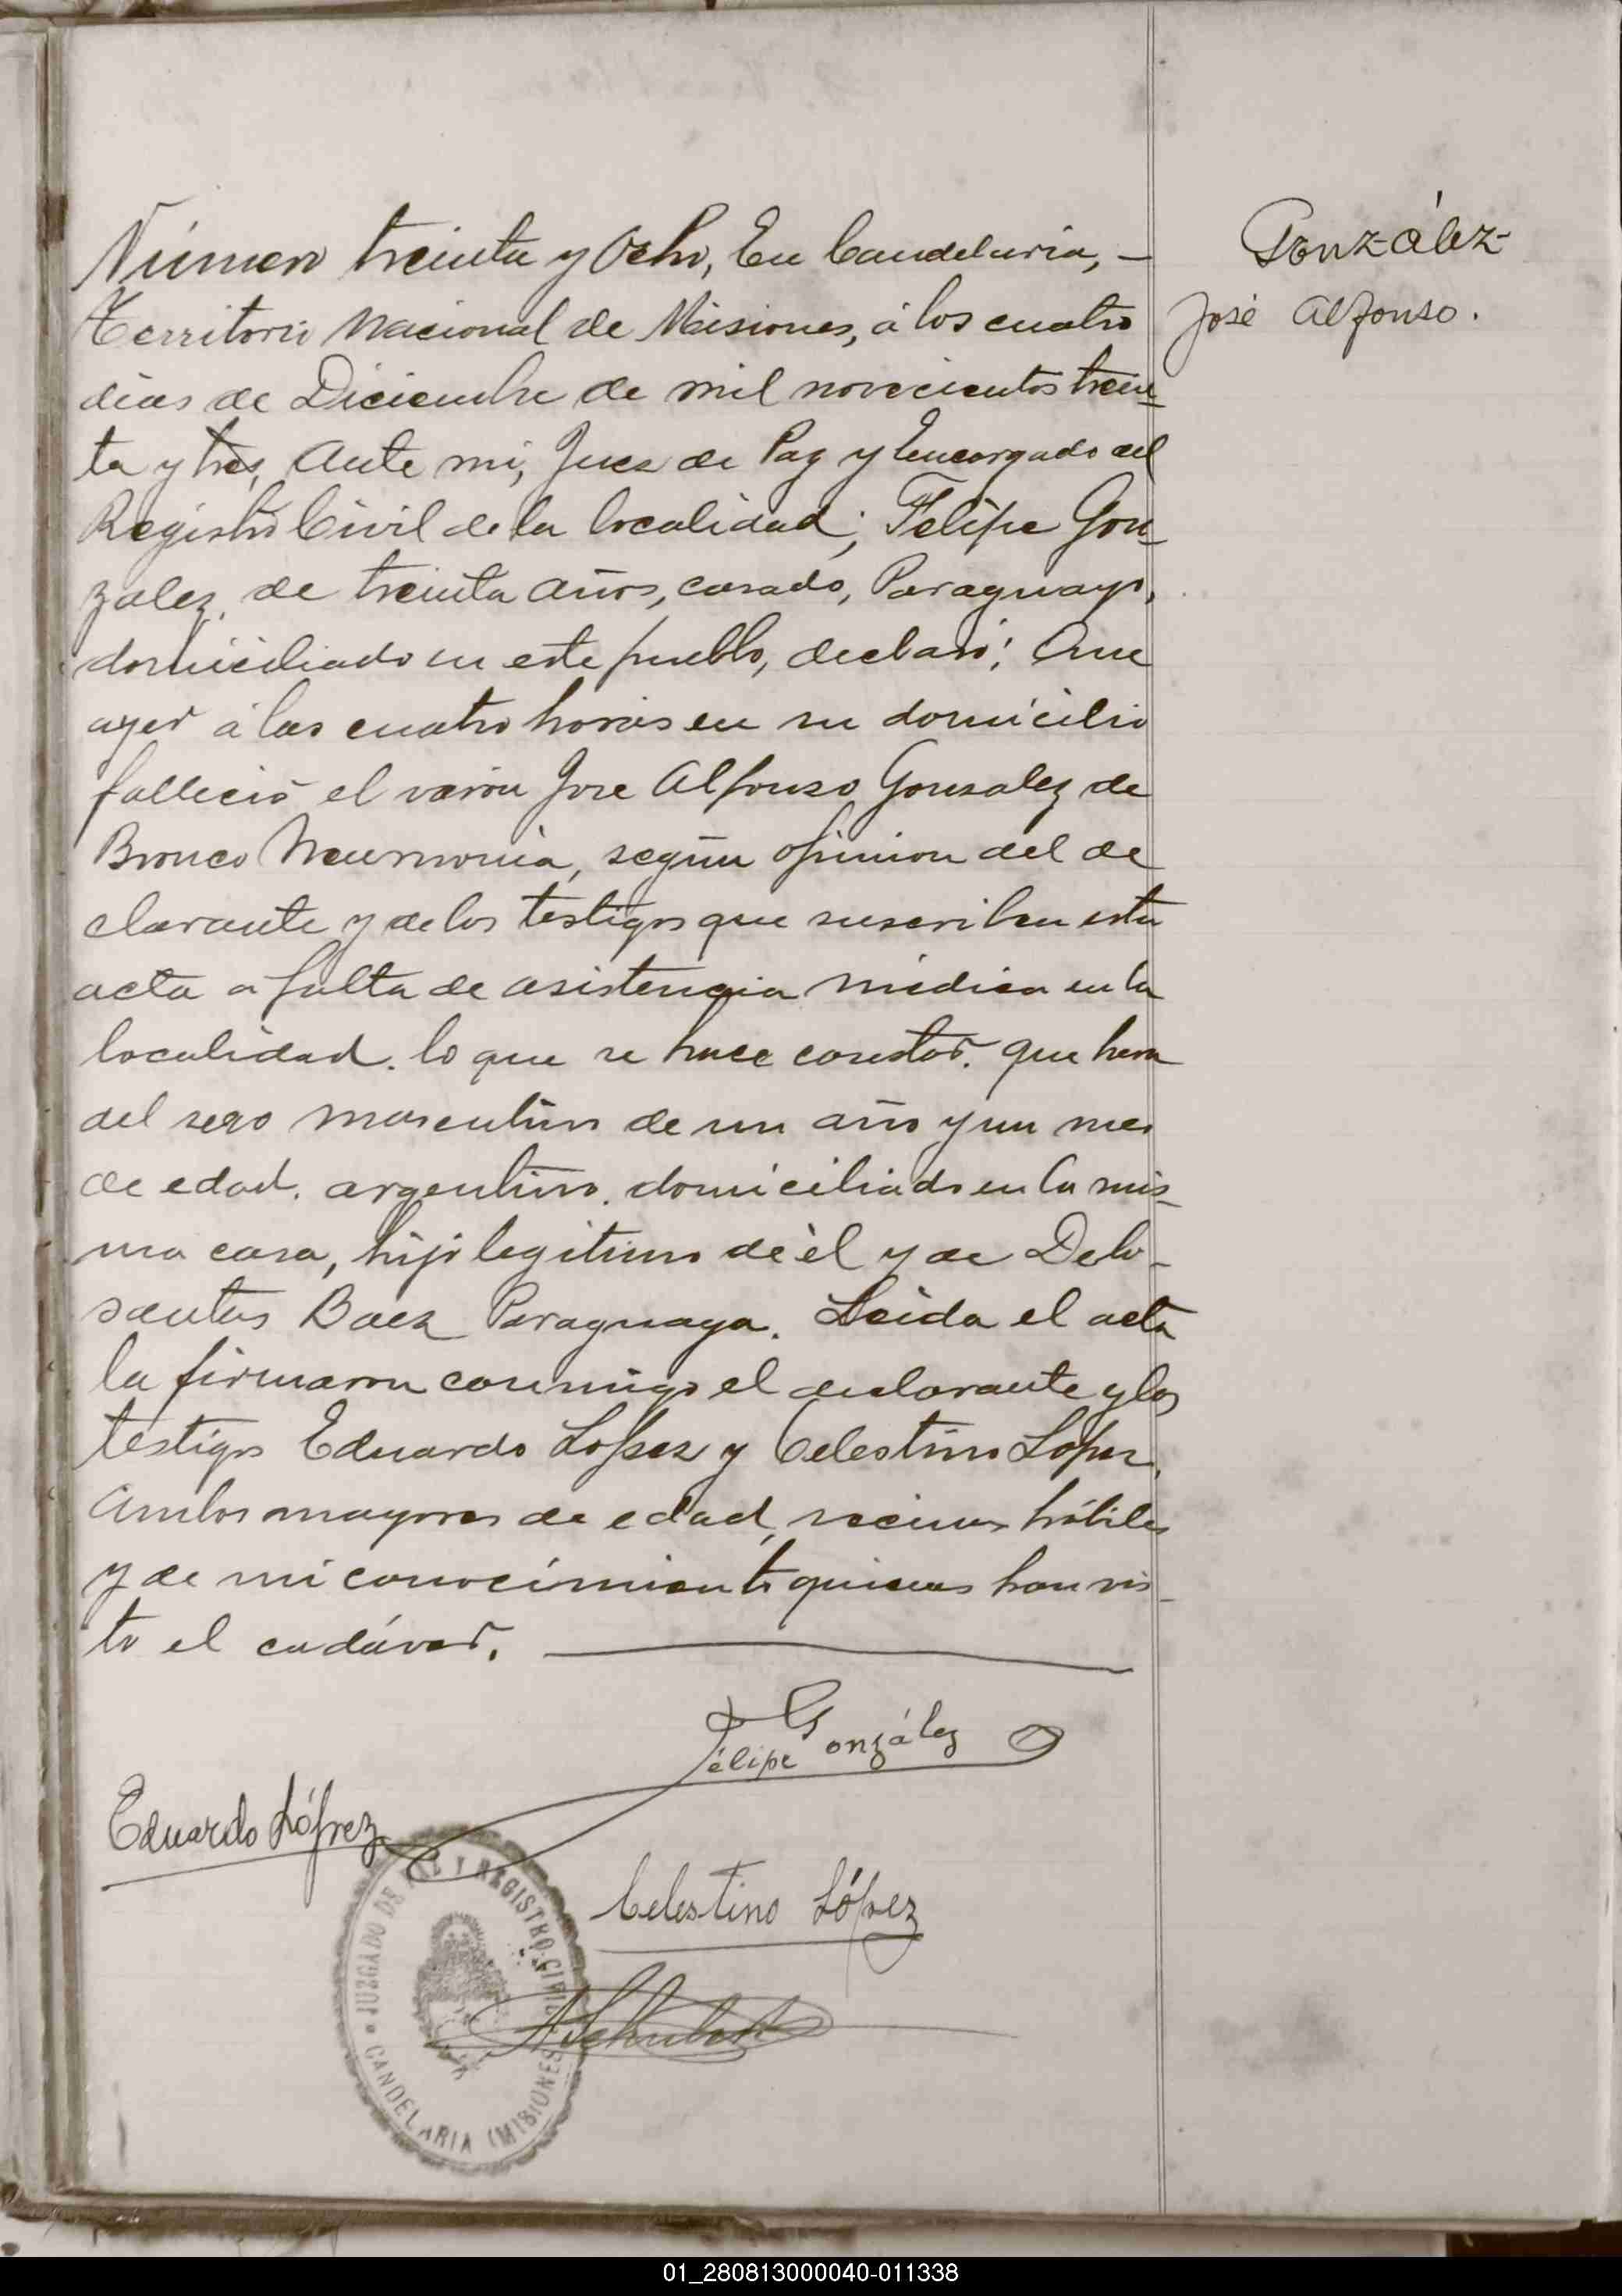 Número treinta y Ocho, En Candelaria, —
Territorio Nacional de Misiones, á los cuatro
dias de Diciembre de mil novecientos trein-
ta y tres, Ante mi, Juez de Paz y Encargado del
Registro Civil de la localidad; Felipe Gon-
zalez, de treinta años, casado, Paraguayo,
domiciliado en este pueblo, declaró: Que
ayer á las cuatro horas en su domicilio
falleció el varon Jose Alfonso Gonsalez de
Bronco Neumonia, según opinion del de
clarante y de los testigos que suscriben esta
acta a falta de asistencia médica en la
localidad. lo que se hace constar. que hera
del sexo masculino de un año y un mes
de edad. argentino. domiciliado en la mis-
ma casa, hijo legitimo de él y de Delo-
santos Baez Paraguaya. Leida el acta
la firmaron conmigo el declarante y los
testigos Eduardo Lopez y Celestino Lopez,
Ambos mayores de edad, vecinos hábiles
y de mi conocimiento quienes han vis-
to el cadáver.
González-
José Alfonso.
Felipe González
Eduardo López
Celestino López
JUZGADO DE PAZ Y REGISTRO CIVIL
CANDELARIA (MISIONES)
01_280813000040-011338